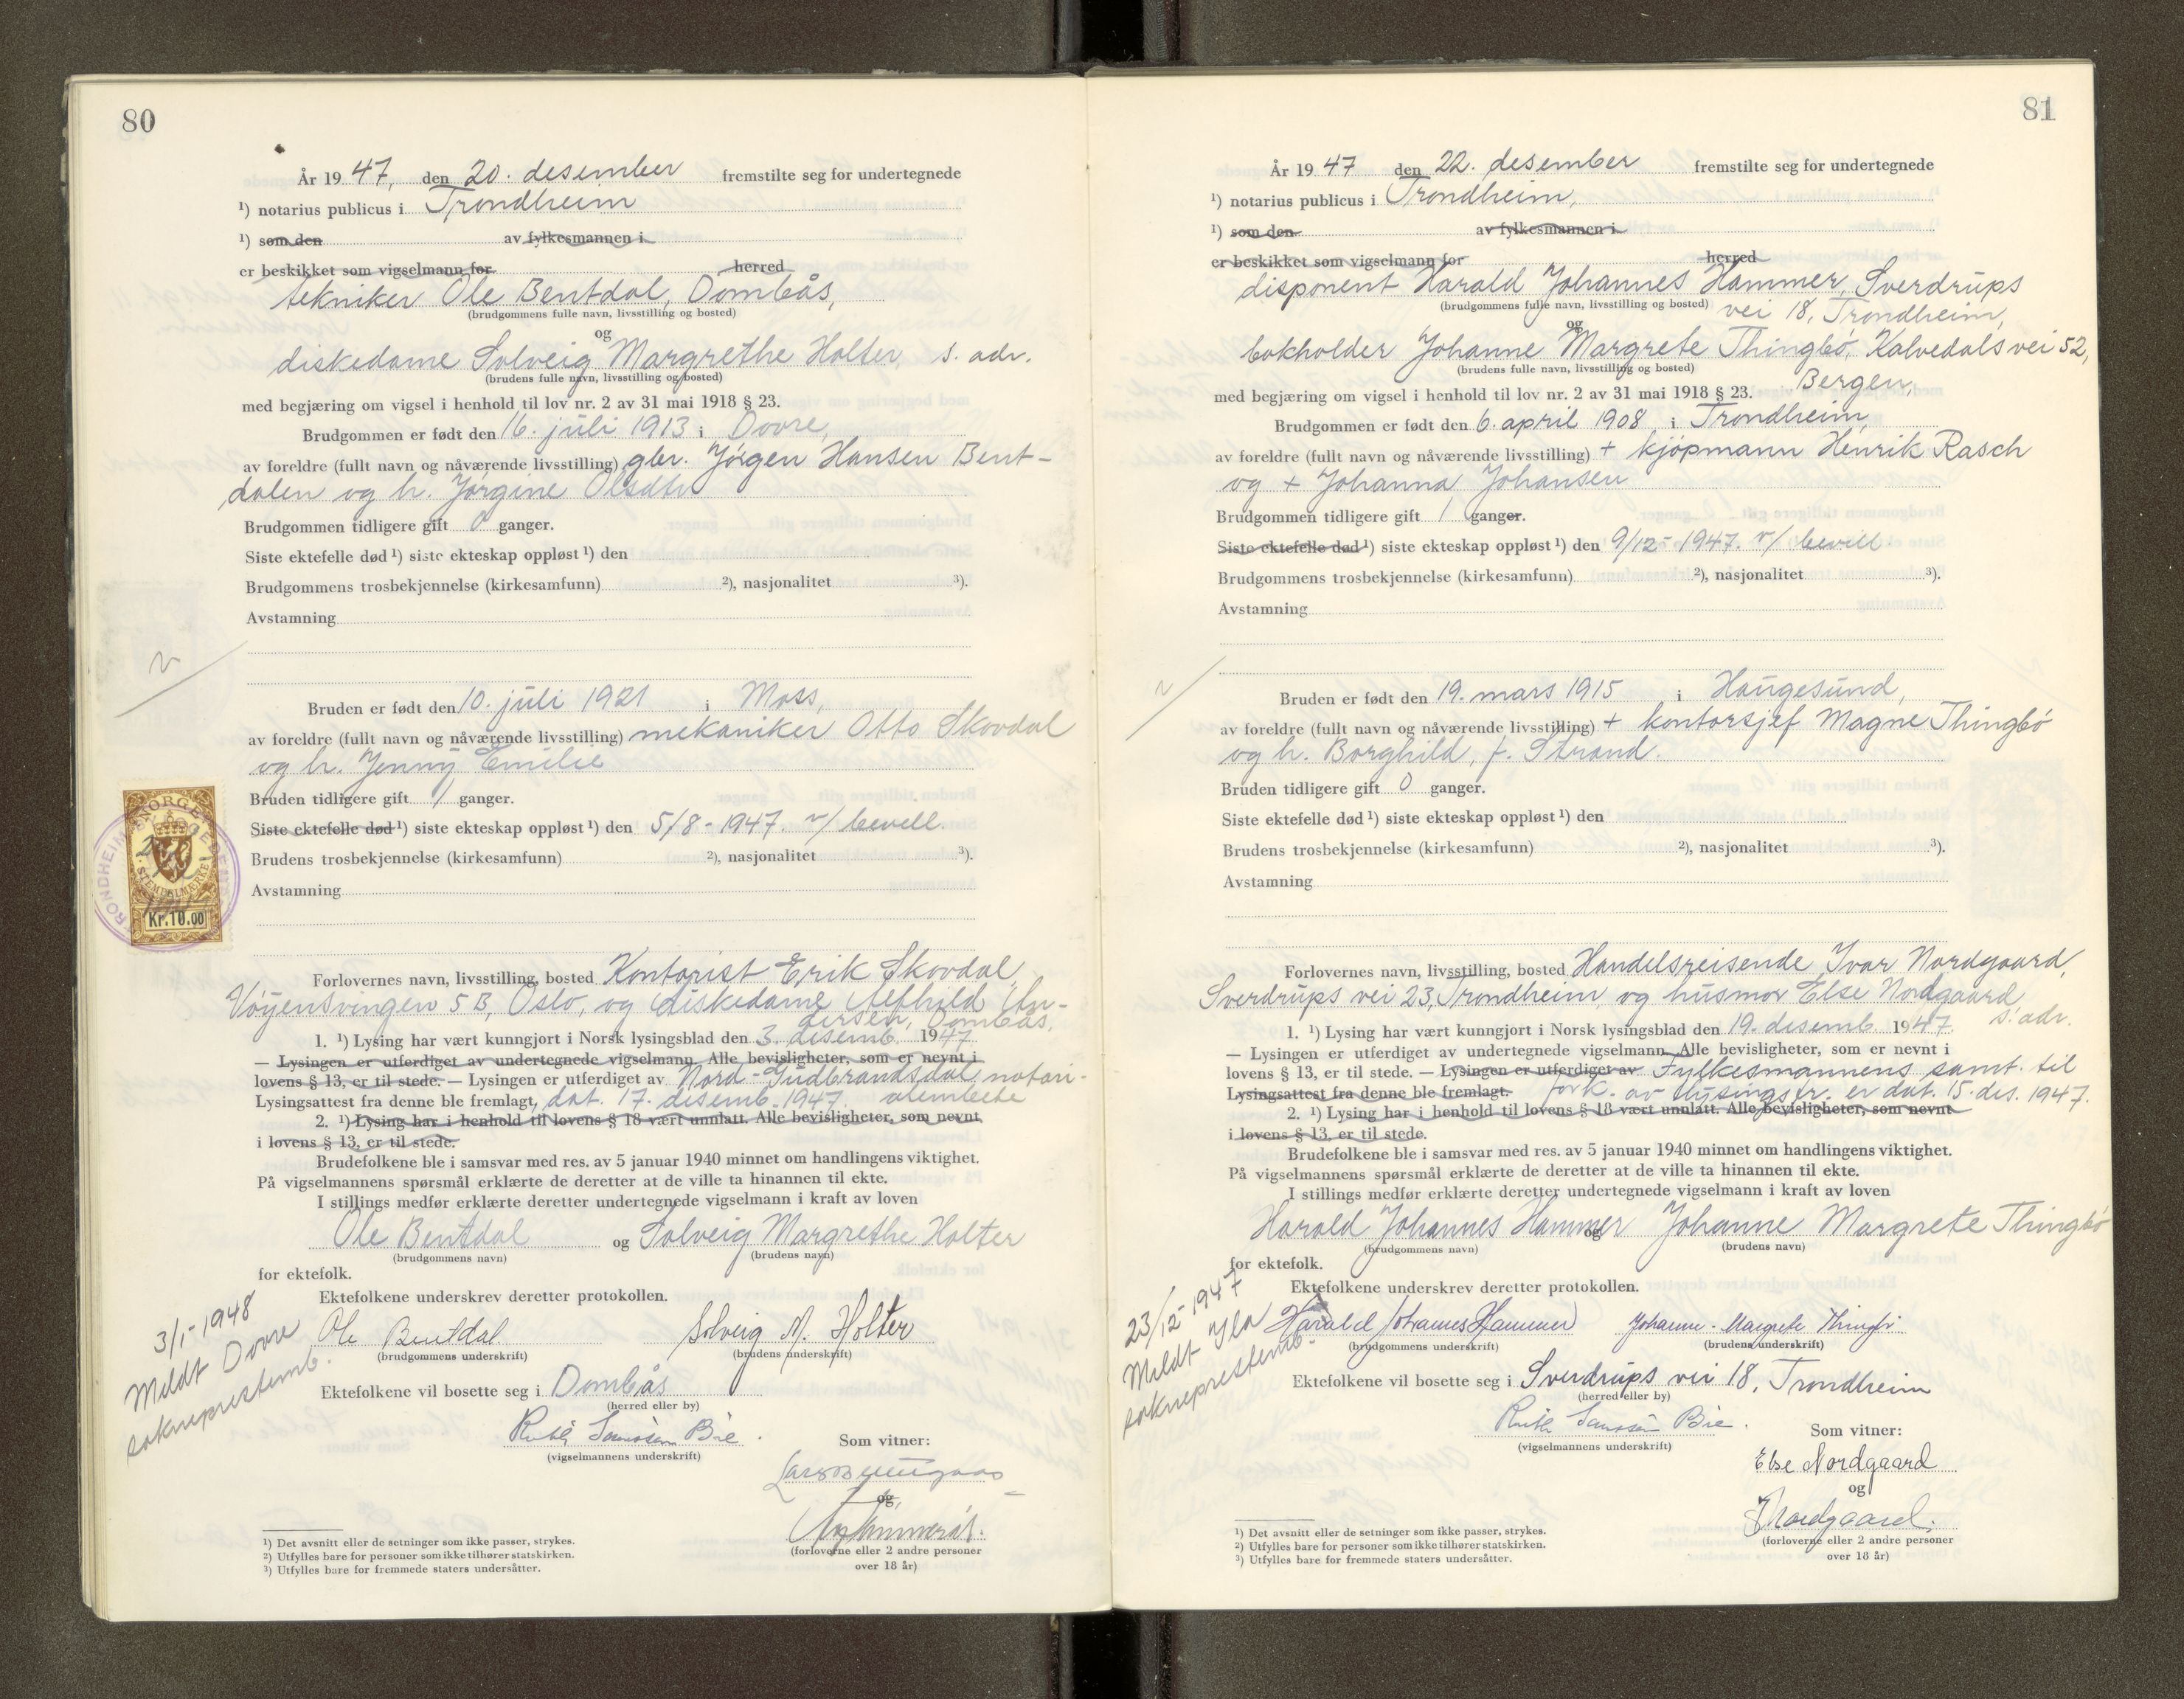 80
År 1947, den 20. desember fremstilte seg for undertegnede
¹) notarius publicus i Trondheim
¹) som den av fylkesmannen i
er beskikket som vigselmann for herred
tekniker Ole Bentdal, Dombås,
(brudgommens fulle navn, livsstilling og bosted)
og
diskedame Solveig Margrethe Holter, s. adr.
(brudens fulle navn, livsstilling og bosted)
med begjæring om vigsel i henhold til lov nr. 2 av 31 mai 1918 § 23.
Brudgommen er født den 16. juli 1913 i Dovre,
av foreldre (fullt navn og nåværende livsstilling) gbr. Jørgen Hansen Bent-
dalen og h. Jørgine Olsdtr
Brudgommen tidligere gift 0 ganger.
Siste ektefelle død ¹) siste ekteskap oppløst ¹) den
Brudgommens trosbekjennelse (kirkesamfunn) ²), nasjonalitet ³).
Avstamning
Bruden er født den 10. juli 1921 i Moss,
av foreldre (fullt navn og nåværende livsstilling) mekaniker Otto Skovdal
og h. Jenny Emilie
Bruden tidligere gift 1 ganger.
Siste ektefelle død ¹) siste ekteskap oppløst ¹) den 5/8-1947. v/ bevill.
Brudens trosbekjennelse (kirkesamfunn) ²), nasjonalitet ³).
Avstamning
NORGE
STEMPELMERKE
Kr. 10.00
Forlovernes navn, livsstilling, bosted Kontorist Erik Skovdal,
Vøyensvingen 5 B, Oslo, og diskedame Alfhild An-
dersen, Dombås,
1. ¹) Lysing har vært kunngjort i Norsk lysingsblad den 3. desemb. 1947
— Lysingen er utferdiget av undertegnede vigselmann. Alle bevisligheter, som er nevnt i
lovens § 13, er til stede. — Lysingen er utferdiget av Nord-Gudbrandsdal notari-
Lysingsattest fra denne ble fremlagt, dat. 17. desemb. 1947. alembete
2. ¹) Lysing har i henhold til lovens § 18 vært unnlatt. Alle bevisligheter, som nevnt
i lovens § 13, er til stede.
Brudefolkene ble i samsvar med res. av 5 januar 1940 minnet om handlingens viktighet.
På vigselmannens spørsmål erklærte de deretter at de ville ta hinannen til ekte.
I stillings medfør erklærte deretter undertegnede vigselmann i kraft av loven
Ole Bentdal og Solveig Margrethe Holter
(brudgommens navn) (brudens navn)
for ektefolk.
Ektefolkene underskrev deretter protokollen.
3/1-1948
Meldt Dovre
sokneprestemb.
Ole Bentdal Solveig M. Holter
(brudgommens underskrift) (brudens underskrift)
Ektefolkene vil bosette seg i Dombås
(herred eller by)
Ruth Bie.
(vigselmannens underskrift)
Som vitner:
og
(forloverne eller 2 andre personer
over 18 år)
¹) Det avsnitt eller de setninger som ikke passer, strykes.
²) Utfylles bare for personer som ikke tilhører statskirken.
³) Utfylles bare for fremmede staters undersåtter.
81
År 1947 den 22. desember fremstilte seg for undertegnede
¹) notarius publicus i Trondheim,
¹) som den av fylkesmannen i
er beskikket som vigselmann for herred
disponent Harald Johannes Hammer, Sverdrups
(brudgommens fulle navn, livsstilling og bosted) vei 18, Trondheim,
og
bokholder Johanne Margrete Thingbø, Kalvedals vei 52,
(brudens fulle navn, livsstilling og bosted)
Bergen,
med begjæring om vigsel i henhold til lov nr. 2 av 31 mai 1918 § 23.
Brudgommen er født den 6. april 1908 i Trondheim,
av foreldre (fullt navn og nåværende livsstilling) + kjøpmann Henrik Rasch
og + Johanna Johansen
Brudgommen tidligere gift 1 ganger.
Siste ektefelle død ¹) siste ekteskap oppløst ¹) den 9/12-1947. v/ bevill
Brudgommens trosbekjennelse (kirkesamfunn) ²), nasjonalitet ³).
Avstamning
Bruden er født den 19. mars 1915 i Haugesund,
av foreldre (fullt navn og nåværende livsstilling) + kontorsjef Magne Thingbø
og h. Borghild, f. Strand.
Bruden tidligere gift 0 ganger.
Siste ektefelle død ¹) siste ekteskap oppløst ¹) den
Brudens trosbekjennelse (kirkesamfunn) ²), nasjonalitet ³).
Avstamning
Forlovernes navn, livsstilling, bosted Handelsreisende Ivar Nordgaard,
Sverdrups vei 23, Trondheim og husmor Else Nordgaard
s. adr.
1. ¹) Lysing har vært kunngjort i Norsk lysingsblad den 19. desemb. 1947.
— Lysingen er utferdiget av undertegnede vigselmann. Alle bevisligheter, som er nevnt i
lovens § 13, er til stede. — Lysingen er utferdiget av Fylkesmannens samt. til
Lysingsattest fra denne ble fremlagt. fork. av lysingsfr. er dat. 15. des. 1947.
2. ¹) Lysing har i henhold til lovens § 18 vært unnlatt. Alle bevisligheter, som nevnt
i lovens § 13, er til stede.
Brudefolkene ble i samsvar med res. av 5 januar 1940 minnet om handlingens viktighet.
På vigselmannens spørsmål erklærte de deretter at de ville ta hinannen til ekte.
I stillings medfør erklærte deretter undertegnede vigselmann i kraft av loven
Harald Johannes Hammer og Johanne Margrete Thingbø
(brudgommens navn) (brudens navn)
for ektefolk.
Ektefolkene underskrev deretter protokollen.
23/12-1947
Meldt Ila
sokneprestemb.
Harald Johannes Hammer Johanne Margrete Thingbø
(brudgommens underskrift) (brudens underskrift)
Ektefolkene vil bosette seg i Sverdrups vei 18, Trondheim
(herred eller by)
Ruth Bie.
(vigselmannens underskrift)
Som vitner:
Else Nordgaard
og
I Nordgaard.
(forloverne eller 2 andre personer
over 18 år)
¹) Det avsnitt eller de setninger som ikke passer, strykes.
²) Utfylles bare for personer som ikke tilhører statskirken.
³) Utfylles bare for fremmede staters undersåtter.